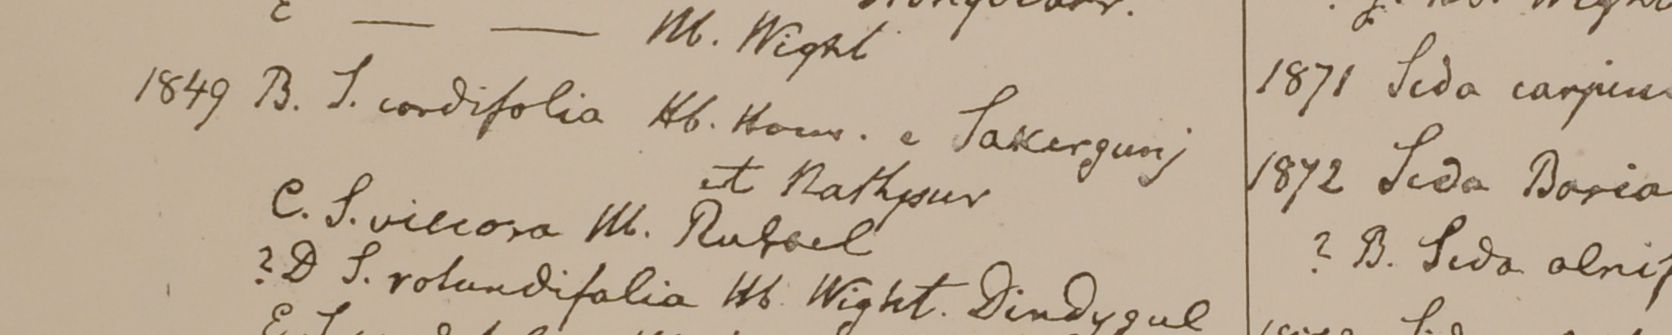 E — — Hb. Wight
1849 B. S. cordifolia Hb. Ham. e Sakergunj
et Nathpur
C. S. villosa Hb. Russel
? D S. rotundifolia Hb Wight. Dindygul
1871 Sida
1872 Sida
? B. Sida